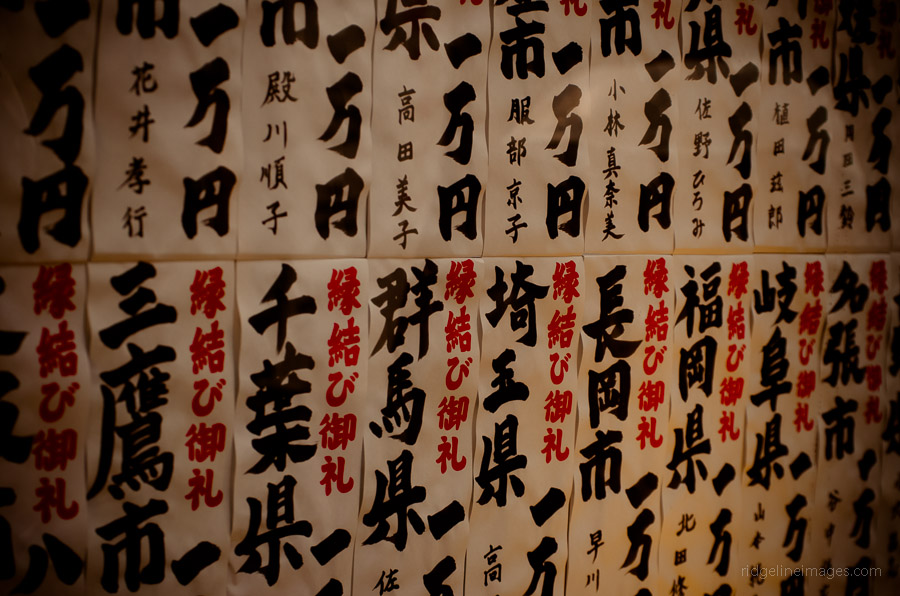 一万円
県
田三鈴
礼
一万円
市
植田
郎
礼
一万円
県
佐野ひろみ
礼
一万円
市
小林真奈美
礼
一万円
市
服部京子
一万円
県
高田美子
一万円
市
殿川順子
一万円
市
花井孝行
一万円
縁結び御礼
一万
名張市
谷中
縁結び御礼
一万
岐阜県
山本
縁結び御礼
一万
福岡県
北田修
縁結び御礼
一万
長岡市
早川
縁結び御礼
一万
埼玉県
高
縁結び御礼
一万
群馬県
佐
縁結び御礼
一万
千葉県
縁結び御礼
一
三鷹市
縁結び御礼
八
ridgelineimages.com